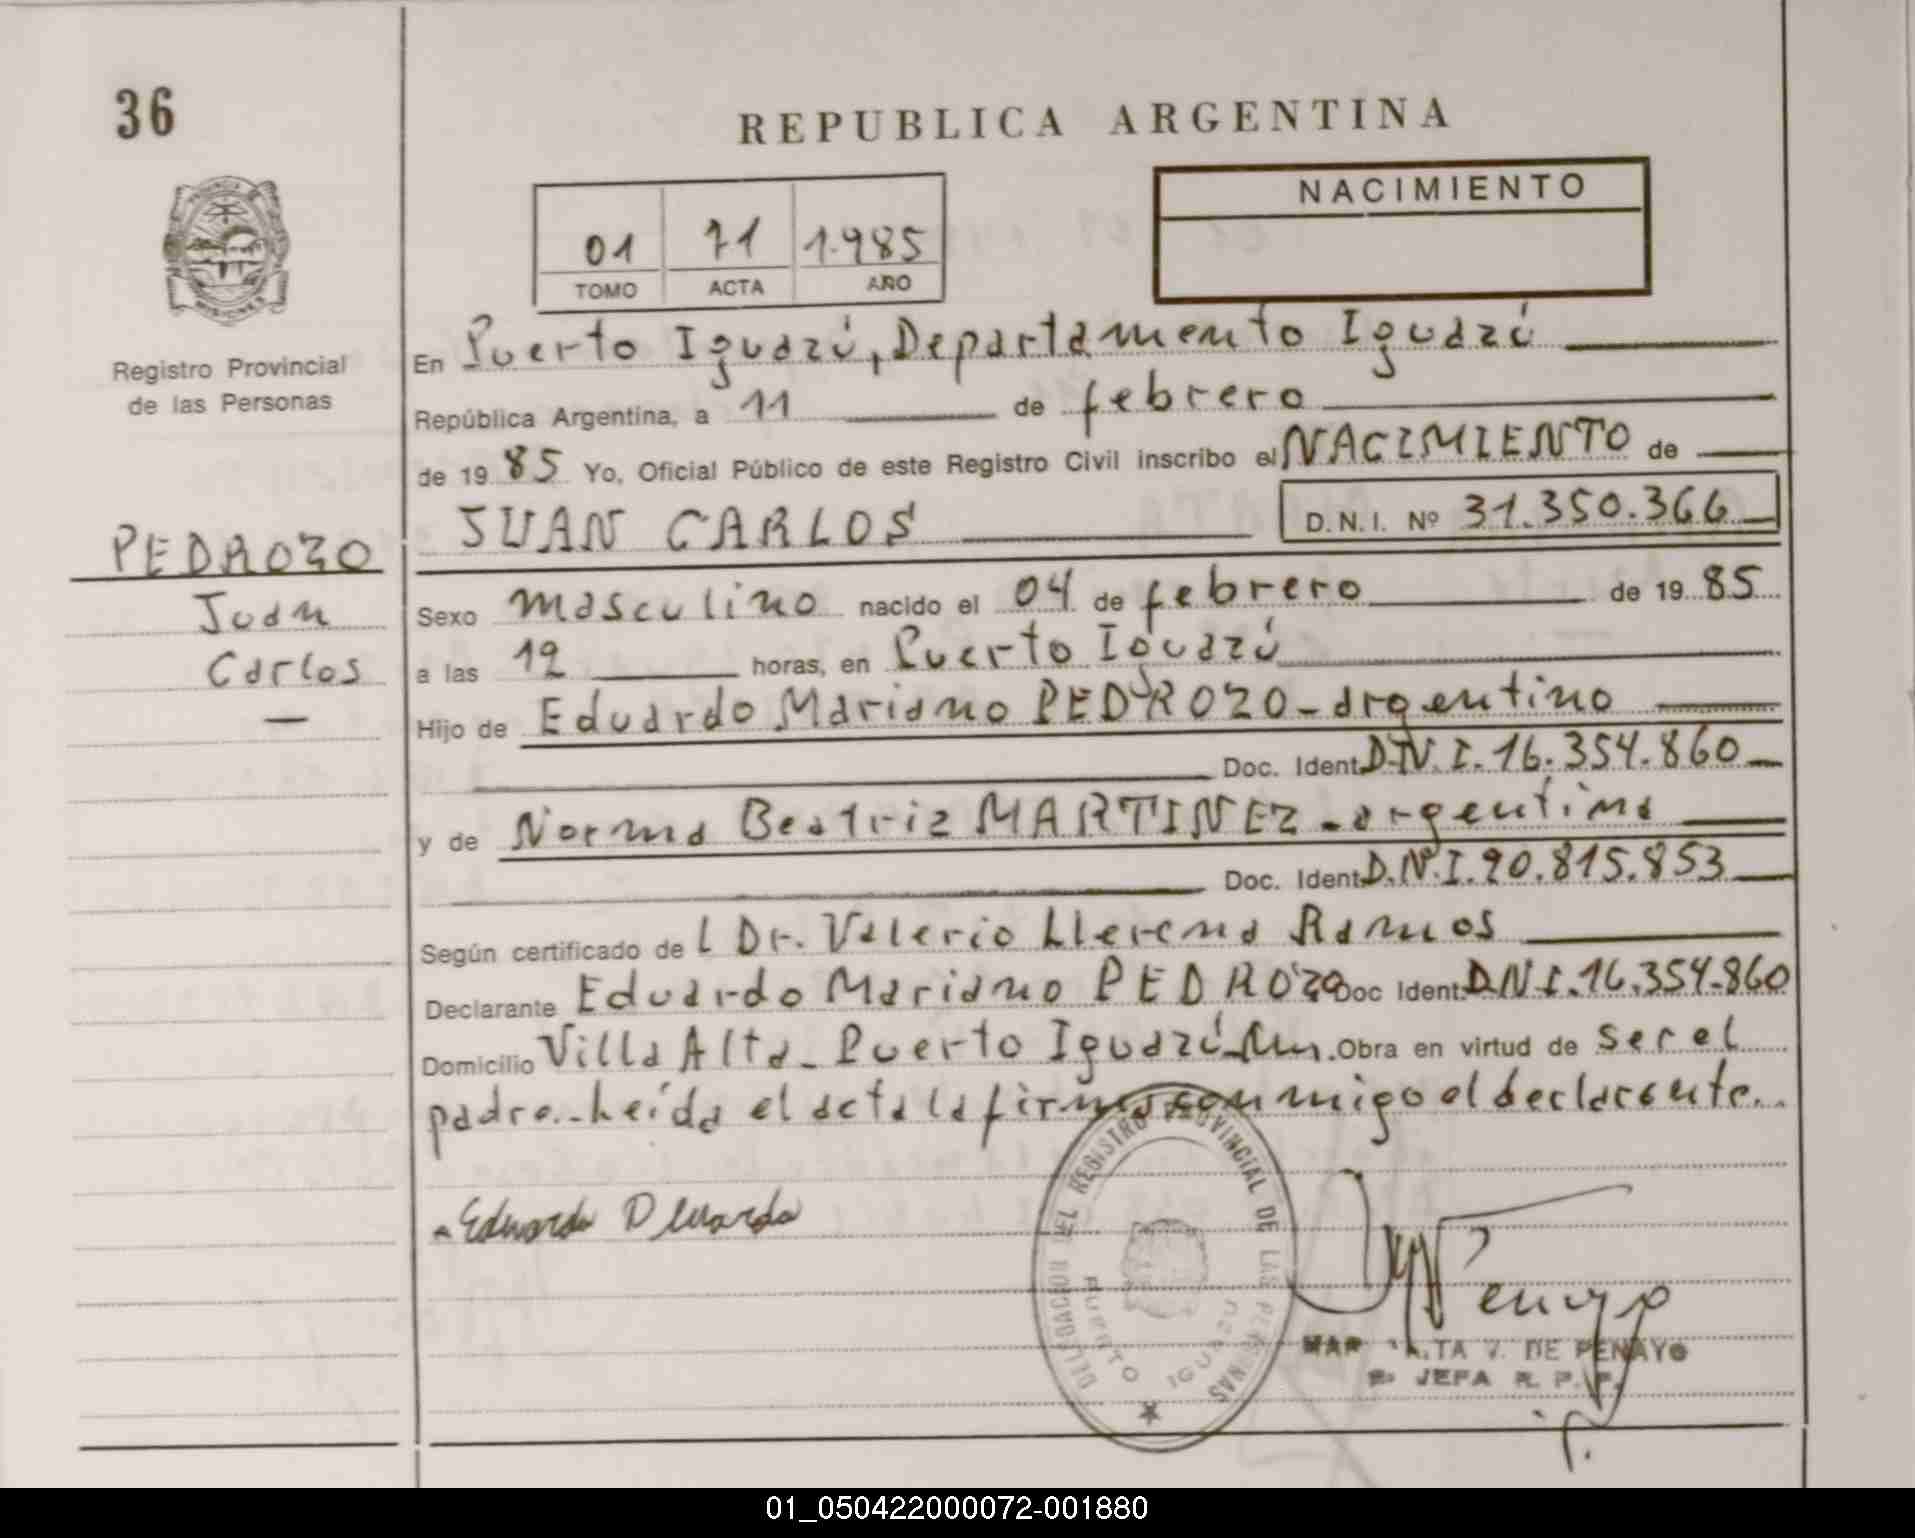 36
REPUBLICA ARGENTINA
NACIMIENTO
01 71 1.985
TOMO ACTA AÑO
PROVINCIA DE
MISIONES
Registro Provincial
de las Personas
En Puerto Iguazú, Departamento Iguazú
República Argentina, a 11 de febrero
de 19 85 Yo, Oficial Público de este Registro Civil inscribo el NACIMIENTO de
JUAN CARLOS D.N.I. Nº 31.350.366
PEDROZO
Juan
Carlos
Sexo masculino nacido el 04 de febrero de 19 85
a las 12 horas, en Puerto Iguazú
Hijo de Eduardo Mariano PEDROZO - argentino
Doc. Ident. D.N.I. 16.354.860
y de Norma Beatriz MARTINEZ - argentina
Doc. Ident. D.N.I. 20.815.853
Según certificado de l Dr. Valerio Llerena Ramos
Declarante Eduardo Mariano PEDROZO Doc Ident. D.N.I. 16.354.860
Domicilio Villa Alta - Puerto Iguazú - Mn. Obra en virtud de ser el
padre.- Leída el acta la firma conmigo el declarante..
Eduardo
DELEGACION DEL REGISTRO PROVINCIAL DE LAS PERSONAS
PUERTO IGUAZU
Penayo
V. DE PENAYO
JEFA R. P. P.
01_050422000072-001880